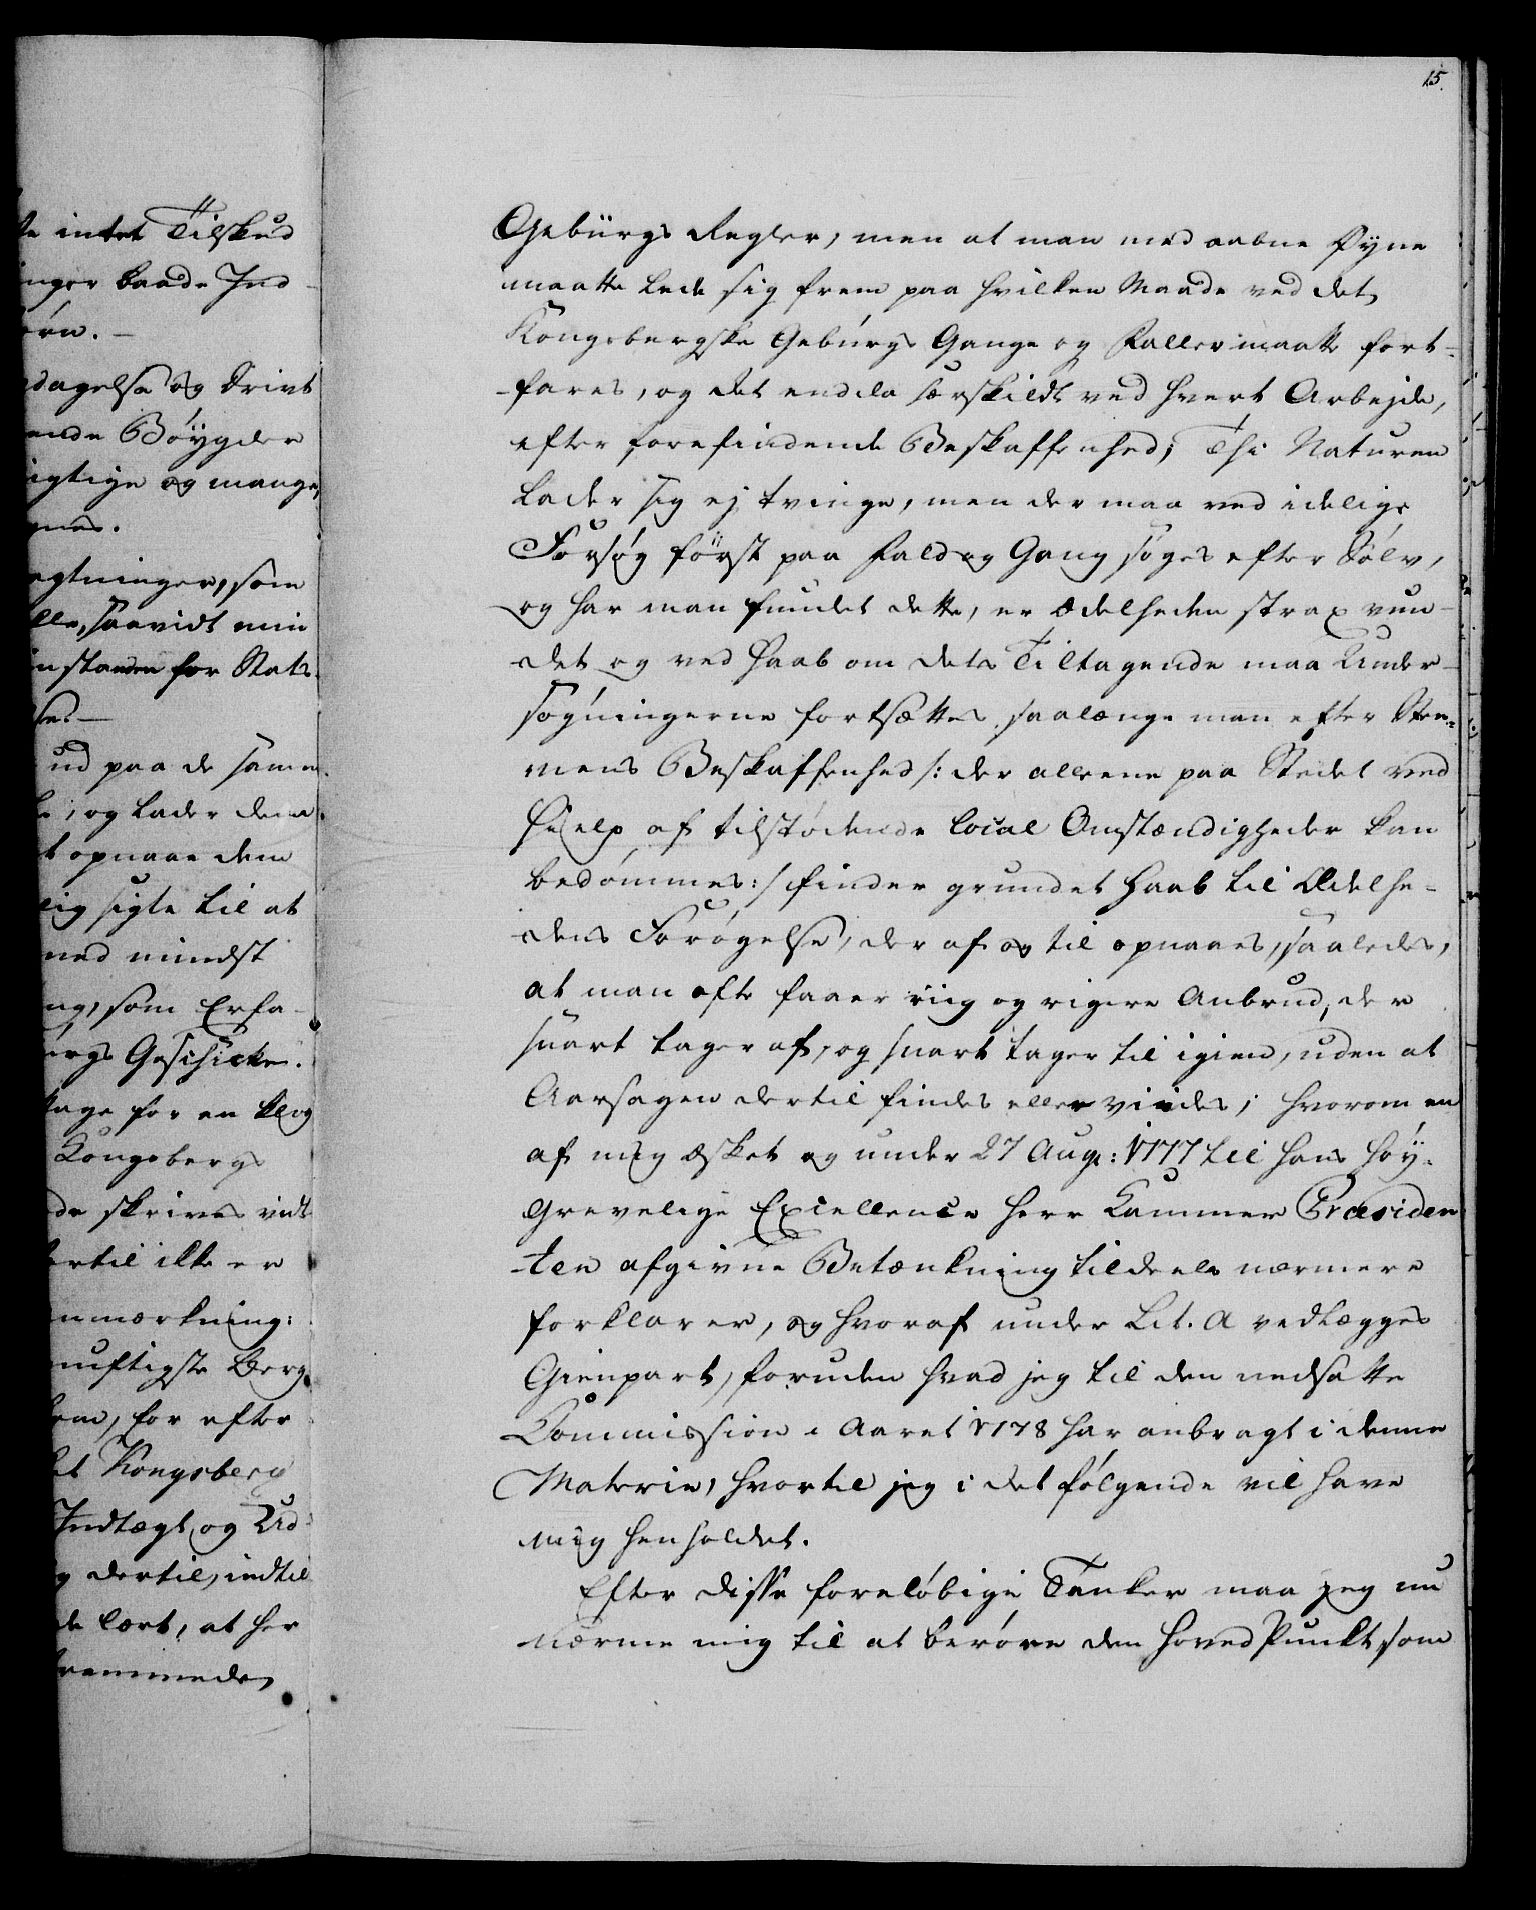 te intet Tilskud
inger baade Ind-
dagelse og Drivt
ende Bøygder
igtige og mange,
gnes.
egtninger, som
lle, saavidt min
nstanden for Stats
ud paa de samm
e, og lader dem
t opnaae dem
lig sigte til at
med mindst
ng, som Erfa-
ürgs Geschicke.
tage for en klog
Kongsbergs
de skrives vidt
ertil ikke er
nmærkning:
nuftigste Berg
tem, for efter
et Kongsberg
Indtægt og Ud-
g dertil, indtil
de lært, at her
fremmede,
15.
Gebürgs Regler, men at man med aabne Øyne
maatte lede sig frem paa hvilken Maade ved det
Kongsbergske Gebürgs Gange og Faller maatte fort-
-fares, og det endda særskildt ved hvert Arbejde,
efter forefindende Beskaffenhed; Thi Naturen
lader sig ej tvinge, men der maa ved idelige
Forsøg først paa Fald og Gang søges efter Sølv,
og har man fundet dette, er Ædelheden strax vun-
det og ved Haab om dets Tiltagende maa Under-
søgningerne fortsættes, saalænge man efter Stee-
nens Beskaffenhed /: der alleene paa Stedet ved
Hielp af tilstødende local Omstændigheder kan
bedømmes :/ finder grundet Haab til Ædelhe-
dens Forøgelse, der af og til opnaaes, saaledes,
at man ofte faaer riig og rigere Anbrud, der
snart tager af, og snart tager til igien, uden at
Aarsagen dertil findes eller viides; hvorom en
af mig æsket og under 27 Aug: 1777 til Hans Høy-
Grevelige Excellence Herr Kammer Præsiden
-ten afgivne Betænkning tildeels nærmere
forklarer, og hvoraf under Lit. A vedlægges
Gienpart, foruden hvad jeg til den nedsatte
Commission i Aaret 1778 har anbragt i denne
Materie, hvortil jeg i det følgende vil have
mig henholdet.
Efter disse foreløbige Tanker maa jeg nu
nærme mig til at berøre den Hoved Punkt, som